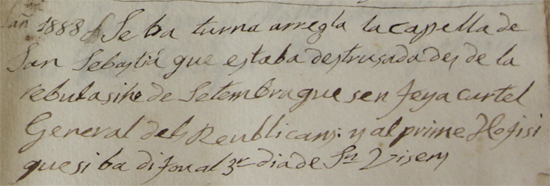 añ 1888 Se ba turna arregla la cappella de
San Sebastiá que estaba destrusada des de la
rebulasiho de Setembra que sen feya cartel
General dels Republicans. y al prime Hofisi
que si ba di fou al 3er dia de Sn Visens